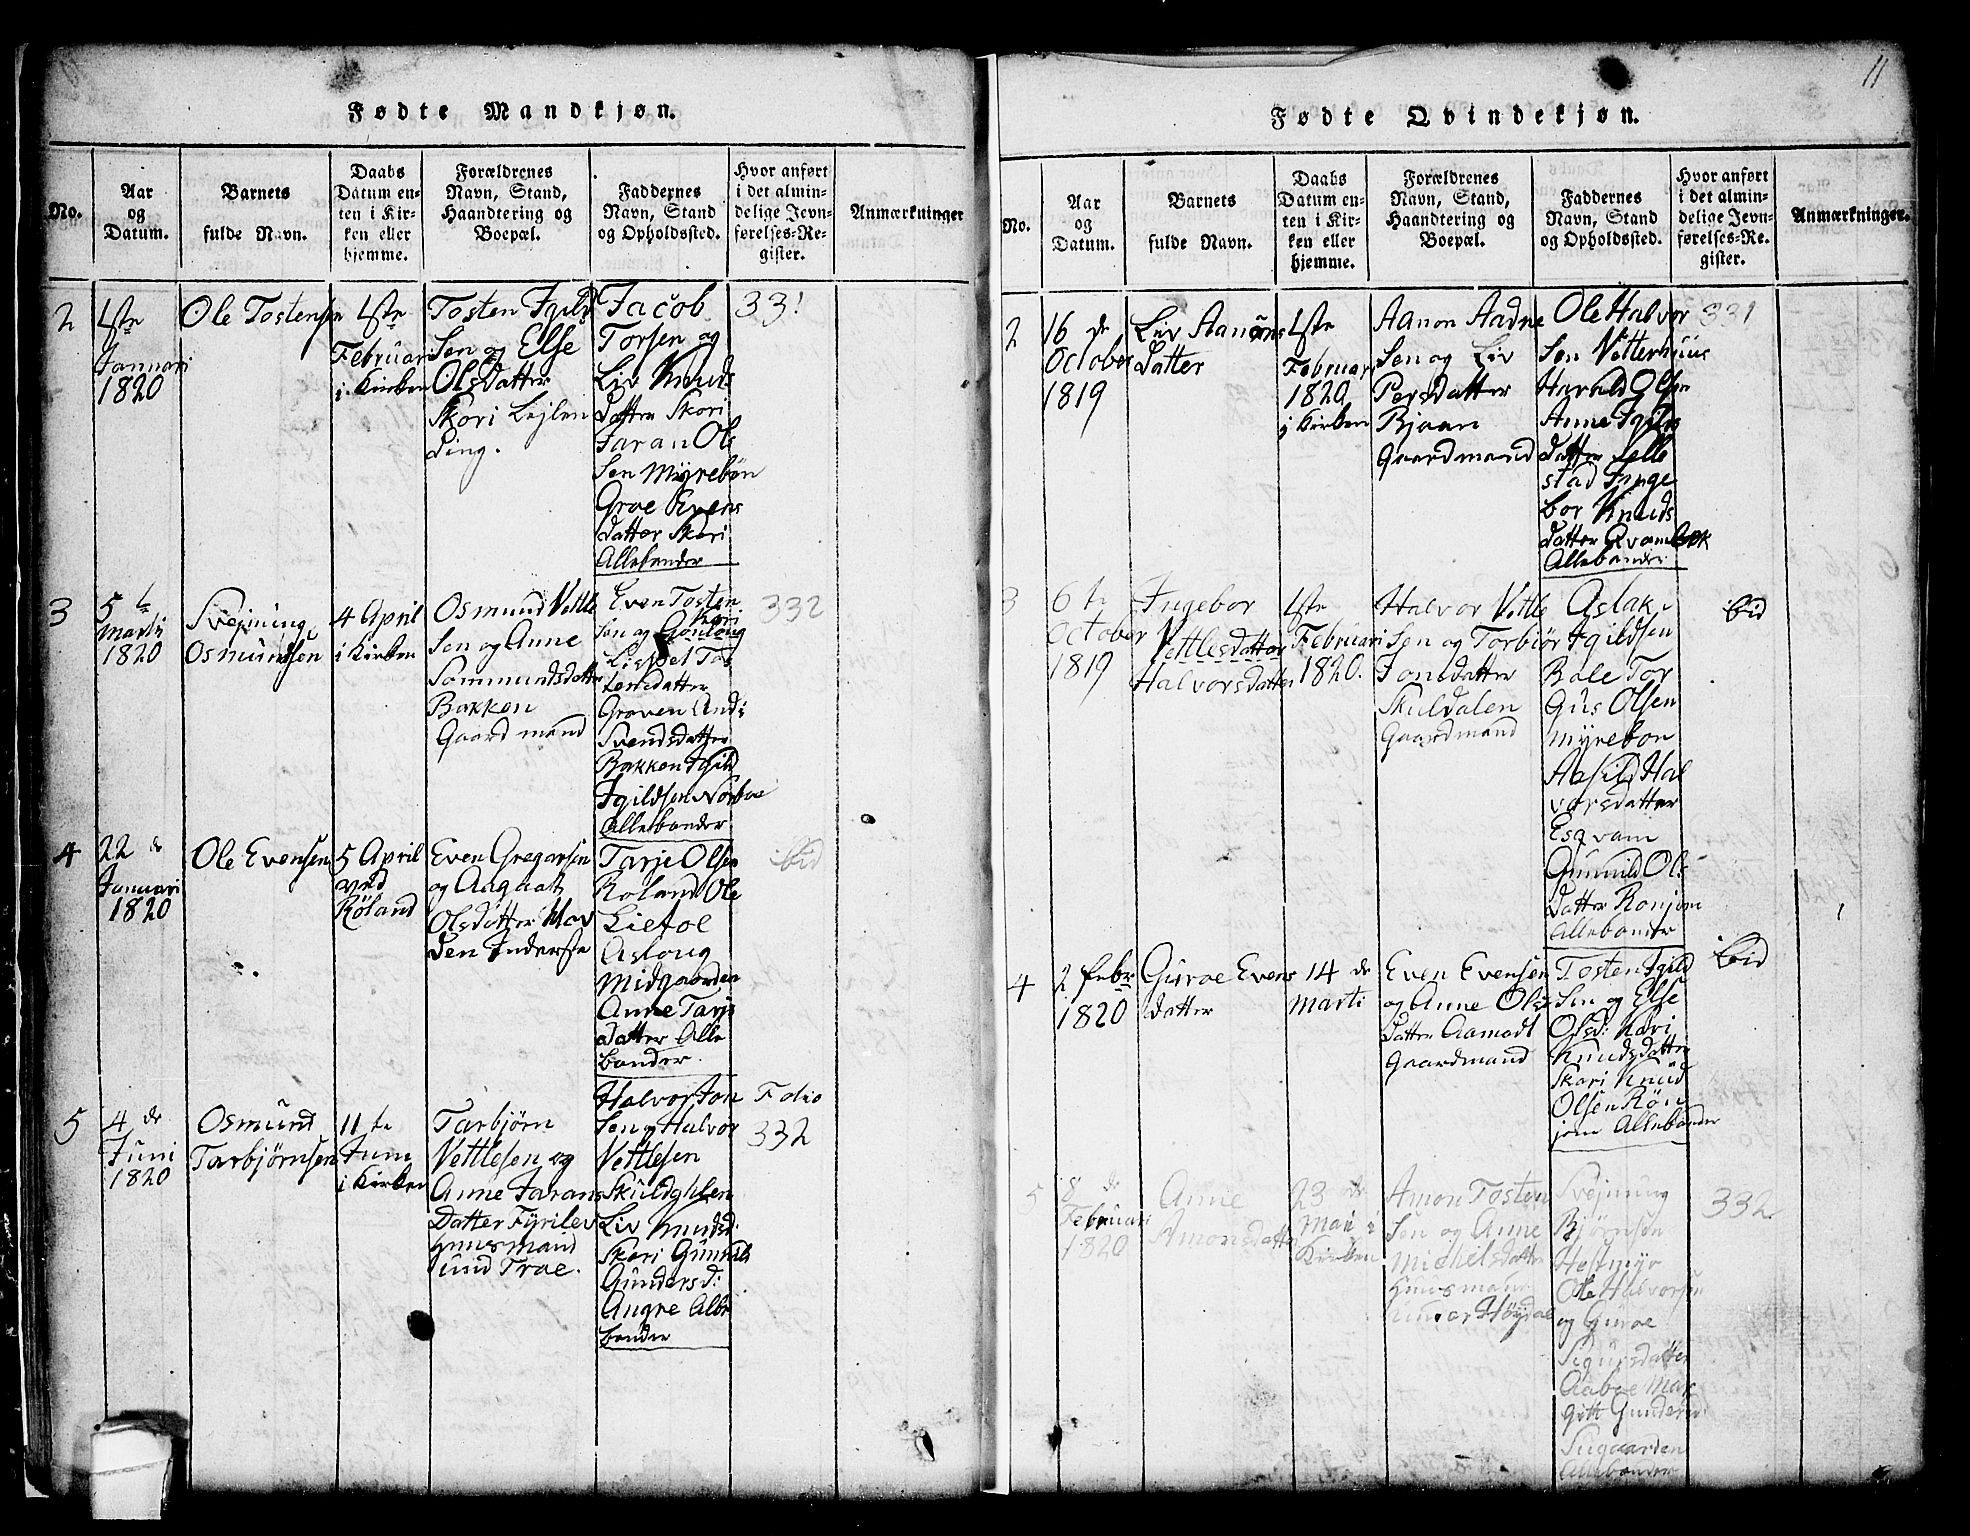 11
Fødte Mandkjøn.
No.
Aar
og
Datum.
Barnets
fulde Navn.
Daabs
Datum en-
ten i Kir-
ken eller
hjemme.
Forældrenes
Navn, Stand,
Haandtering og
Boepæl.
Faddernes
Navn, Stand
og Opholdssted.
Hvor anført
i det almin-
delige Jevn-
førelses-Re-
gister.
Anmærkninger
2
1ste
Januari
1820
Ole Tostensen
1ste
Februari
i Kirken
Tosten Igild
Sen og Else
Olsdatter
Skori Lejlen
ding.
Jacob
Torsen og
Liv Knuds
datter Skori
Jaran Ols
Sen Myrebøn
Groe Evens
datter Skori
Allebander
331
3
5te
Marti
1820
Svejning
Osmundsen
4 April
i Kirken
Osmund Vettle
Sen og Anne
Sommundsdatter
Bakken
Gaard mand
Even Tosten
Sen og Gonloug
Skori
Lispet Tos
tensdatter
Groven
Svendsdatter
Bakken Igild
Igildsen Norboe
Allebander
332
4
22 de
Januari
1820
Ole Evensen
5 April
ved
Røland
Even Gregarsen
og Aagaat
Olsdatter Hov
den Inderste
Tarje Olsen
Roland Ole
Lietoe
Asloug
Midgaarden
Anne Tarje
datter Alle
bander
ibid
5
4 de
Juni
1820
Osmund
Tarbjørnsen
11 te
Juni
i Kirken
Tarbjørn
Vettlesen og
Anne Jarans
Datter Fyrilev
Huusmand
und Troe.
Halvor Jon
Sen og Halvor
Vettlesen
Skuldahlen
Liv Knudsd:
Skori Gunnild
Gundersd:
Angre Alle
bander
Folio
332
Fødte Qvindekjøn.
No.
Aar
og
Datum.
Barnets
fulde Navn.
Daabs
Datum en-
ten i Kir-
ken eller
hjemme.
Forældrenes
Navn, Stand,
Haandtering og
Boepæl.
Faddernes
Navn, Stand
og Opholdssted.
Hvor anført
i det almin-
delige Jevn-
førelses-Re-
gister.
Anmærkninger.
2
16 de
October
1819
Liv Aanons
Datter
1ste
Februari
1820
i Kirken
Aanon Aadne
Sen og Liv
Persdatter
Bjaan
Gaardmand
Ole Halvor
Sen Vetterhuus
Harald Olsen
Anne Igilds
datter Selle
stad Inge
bor Knuds
datter Qvambek
Allebander
331
3
6 te
October
1819
Ingebor
Vettlesdatter
Halvorsdatter
1ste
Februari
1820.
Halvor Vettle
Sen og Torbiør
Jonsdatter
Skuldalen
Gaardmand
Aslak
Igildsen
Bole Tor
Gus Olsen
Myrebon
Aasild Hal
vorsdatter
Esqvam
Gunnild Ols
datter Ronjom
Allebander
ibid
4
2 febr
1820
Guroe Evens
datter
14 de
Marti
Even Evensen
og Anne Ols
datter Aamodt
Gaardmand
Tosten Igild
Sen og Else
Olsd: Kari
Knudsdatter
Skori Knud
Olsen Røn
jom Allebander
ibid
5
8 de
Februari
1820
Anne
Amonsdatter
23 de
Mai i
Kirken
Amon Tosten
Sen og Anne
Michelsdatter
Huusmand
under Høydal
Svejnung
Bjørnsen
Hestmyr
Ole Halvorsen
og Guroe
Sigursdatter
Aaboe Mar
gith Gunders
Sugaarden
Allebander
332